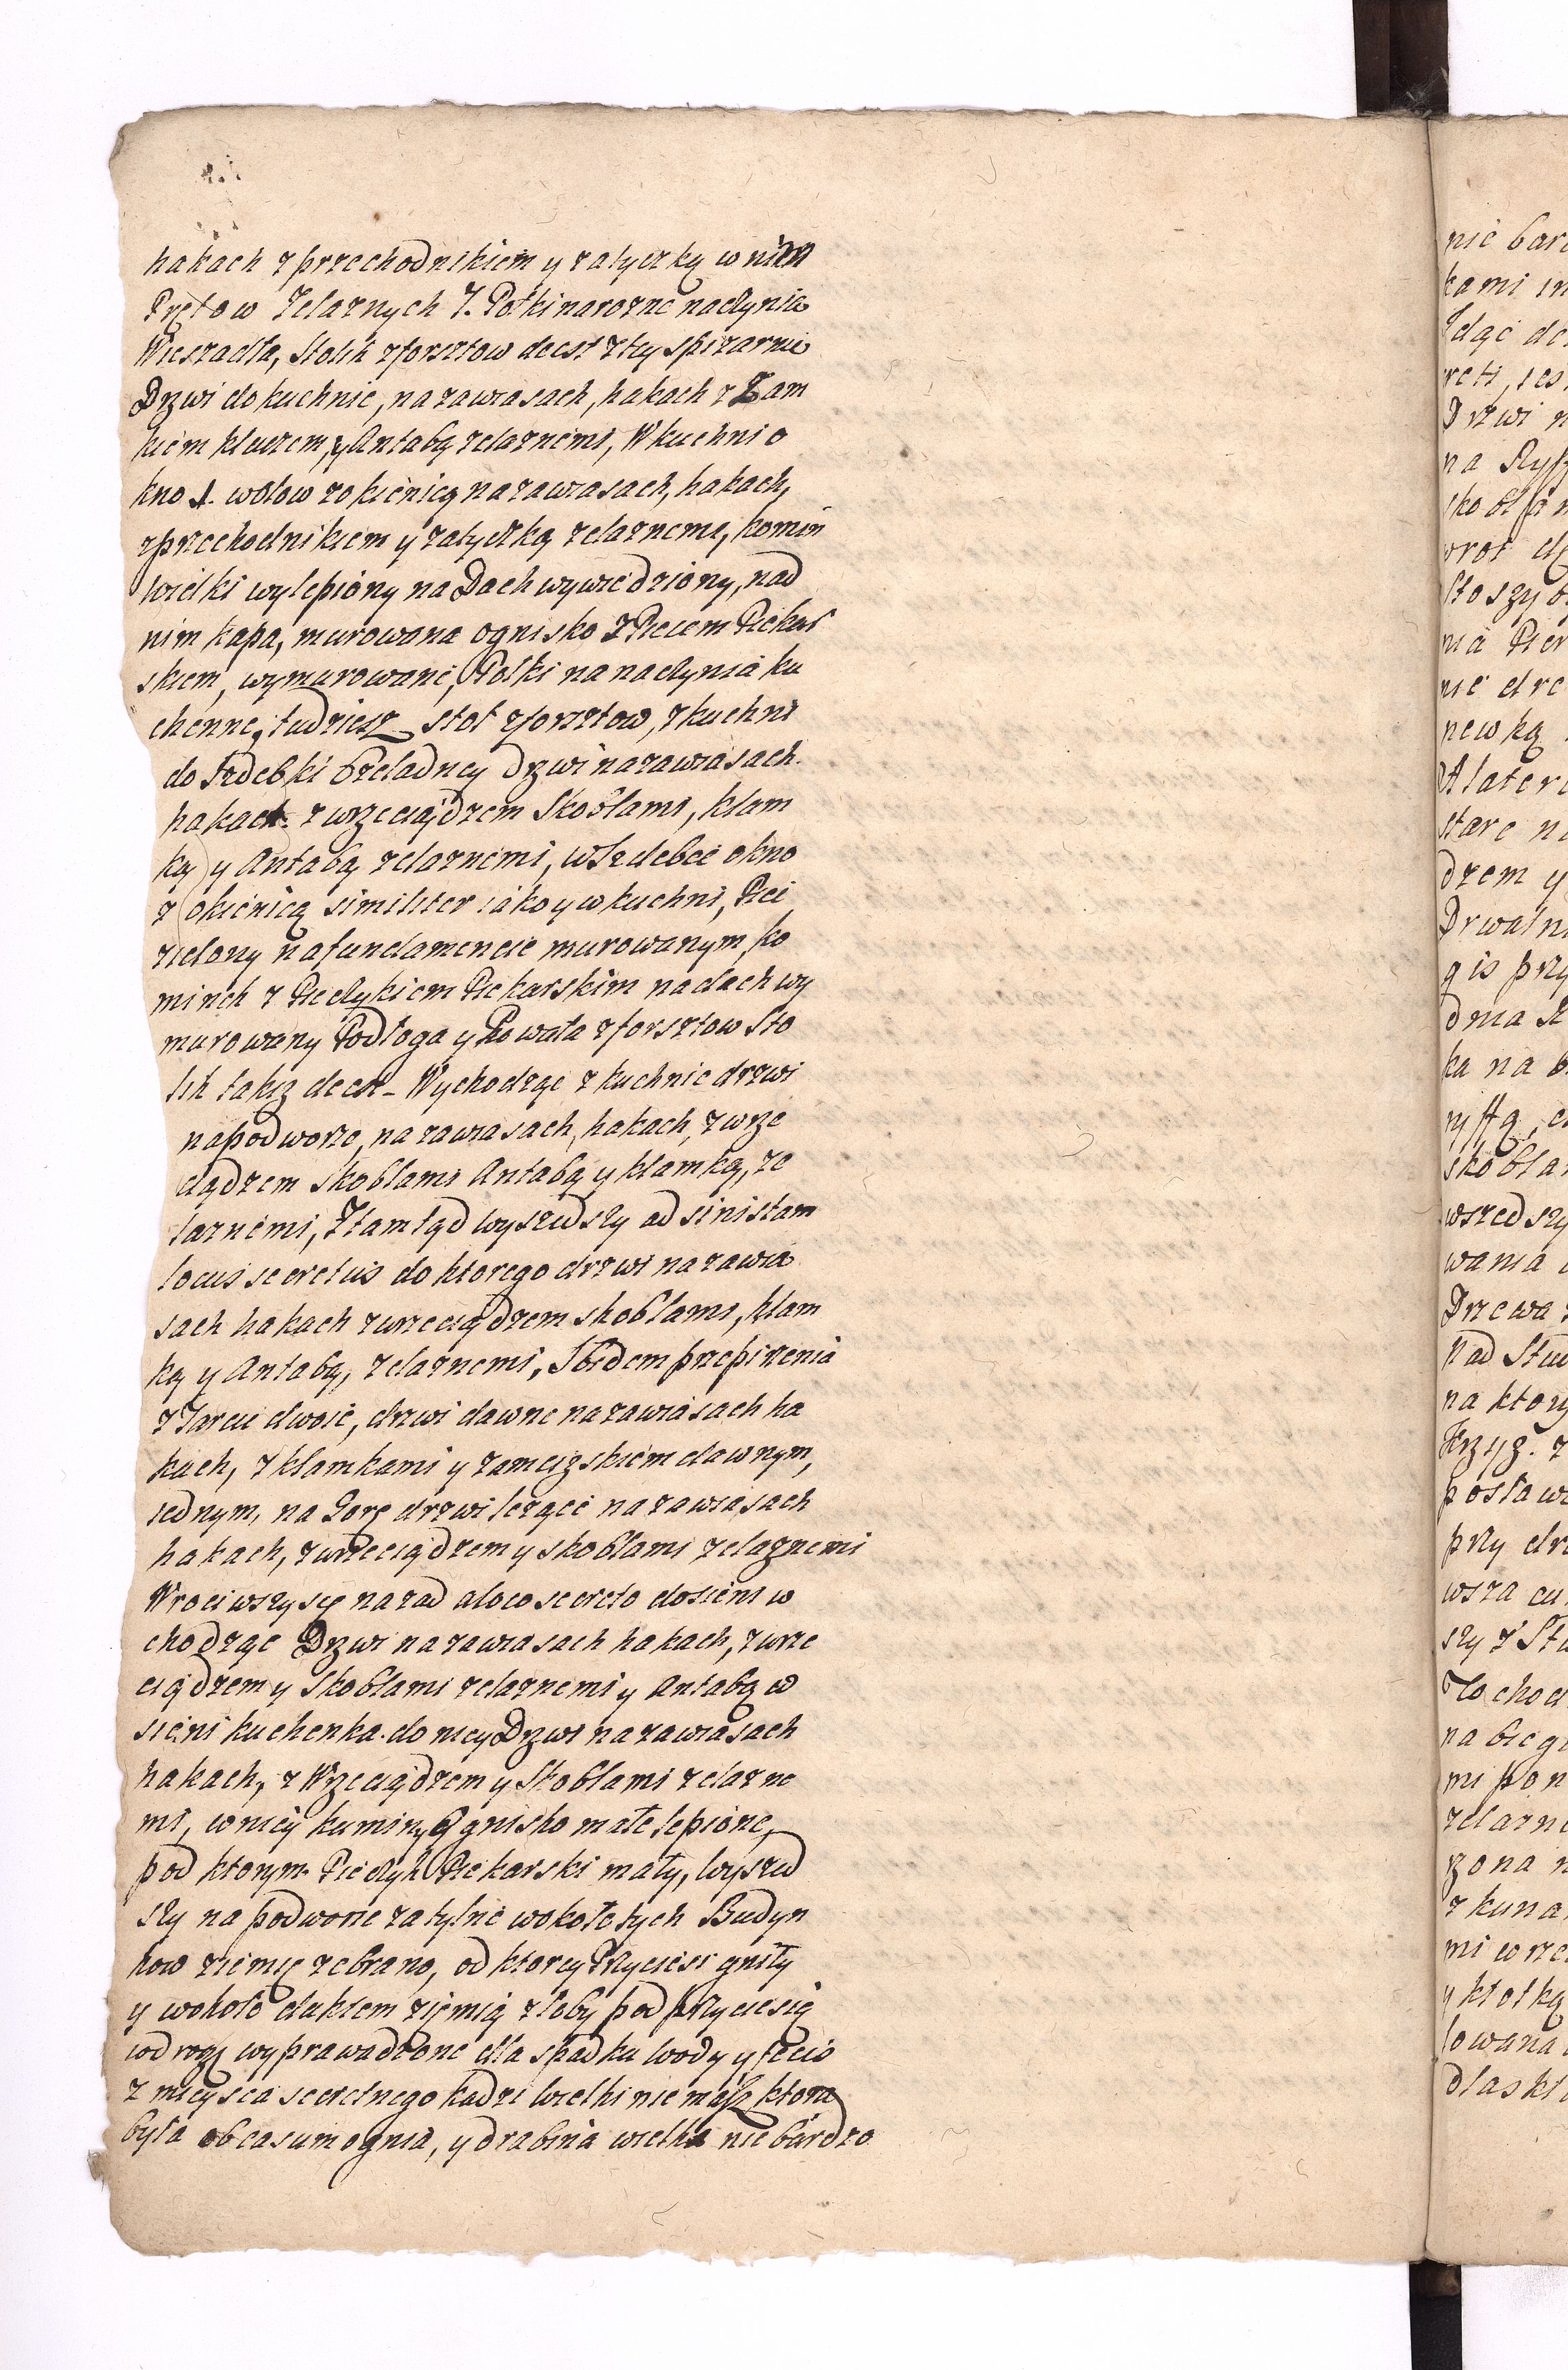 hakach z przechodnikiem y zatyczką w nim
Prętow Zelaznych 7. Połki narozne naczynia
Wieszadła, Stolik zforsztow deest z tey spizarnie
Drzwi do kuchnie, na zawiasach, hakach z Zam
kiem kluczem, y Antabą zelaznemi, W kuchni o
kno 1. wołow zokienicą na zawiasach, hakach,
z przechodnikiem y zatyczką zelaznemi, komin
wielki wylepiony na Dach wywiedziony, nad
nim kapa, murowana ognisko z Piecem Piekar
skiem, wymurowane, Połki na naczynia ku
chenne, tudziesz stoł zforsztow, z kuchni
do Izdebki Czeladney Drzwi na zawiasach.
hakach. z wrzeciądzem Skoblami, klam
ką y Antabą zelaznemi, w Izdebce okno
z okienicą similiter iako y w kuchni, Piec
zielony na fundamencie murowanym, ko
minek z Piecykiem Piekarskim na dach wy
murowany Podłoga y Powała zforsztow Sto
lik takiz deest Wychodząc z kuchnie drzwi
na podworze, na zawiasach, hakach, z wrze
ciądzem Skoblami Antabą y klamką, ze
laznemi, Ztamtąd wyszedszy ad sinistam
locus secretus do ktorego drzwi na zawia
sach hakach z wrzeciądzem skoblami, klam
ką y Antabą, zelaznemi, Ibidem przepirzenia
z Tarcic dwoie, drzwi dawne na zawiasach ha
kach, z klamkami y zameczskiem dawnym,
iednym, na Gorę drzwi lezące na zawiasach
hakach, z wrzeciądzem y skoblami zelaznemi
Wrociwszy się nazad a loco secreto do sieni w
chodząc Drzwi na zawiasach hakach, z wrze
ciądzem y Skoblami zelaznemi y Antabą w
sieni kuchenka. do niey Drzwi na zawiasach
hakach, z Wrzeciądzem y Skoblami zelazne
mi, w niey kumin, y Ognisko małe lepione,
pod ktorym Piecyk Piekarski mały, wyszed
szy na podworze zatylne wokoło tych Budyn
kow ziemię zebrano, od ktorey Przyciesi gniły
y wokoło duktem ziemią złoby pod przyciesią
wodrogę wyprawadzone dla spadku wody y secio
z mieysca secretnego kadzi wielki nie masz ktora
była ob casum ognia, y drabina wielka nie bardzo